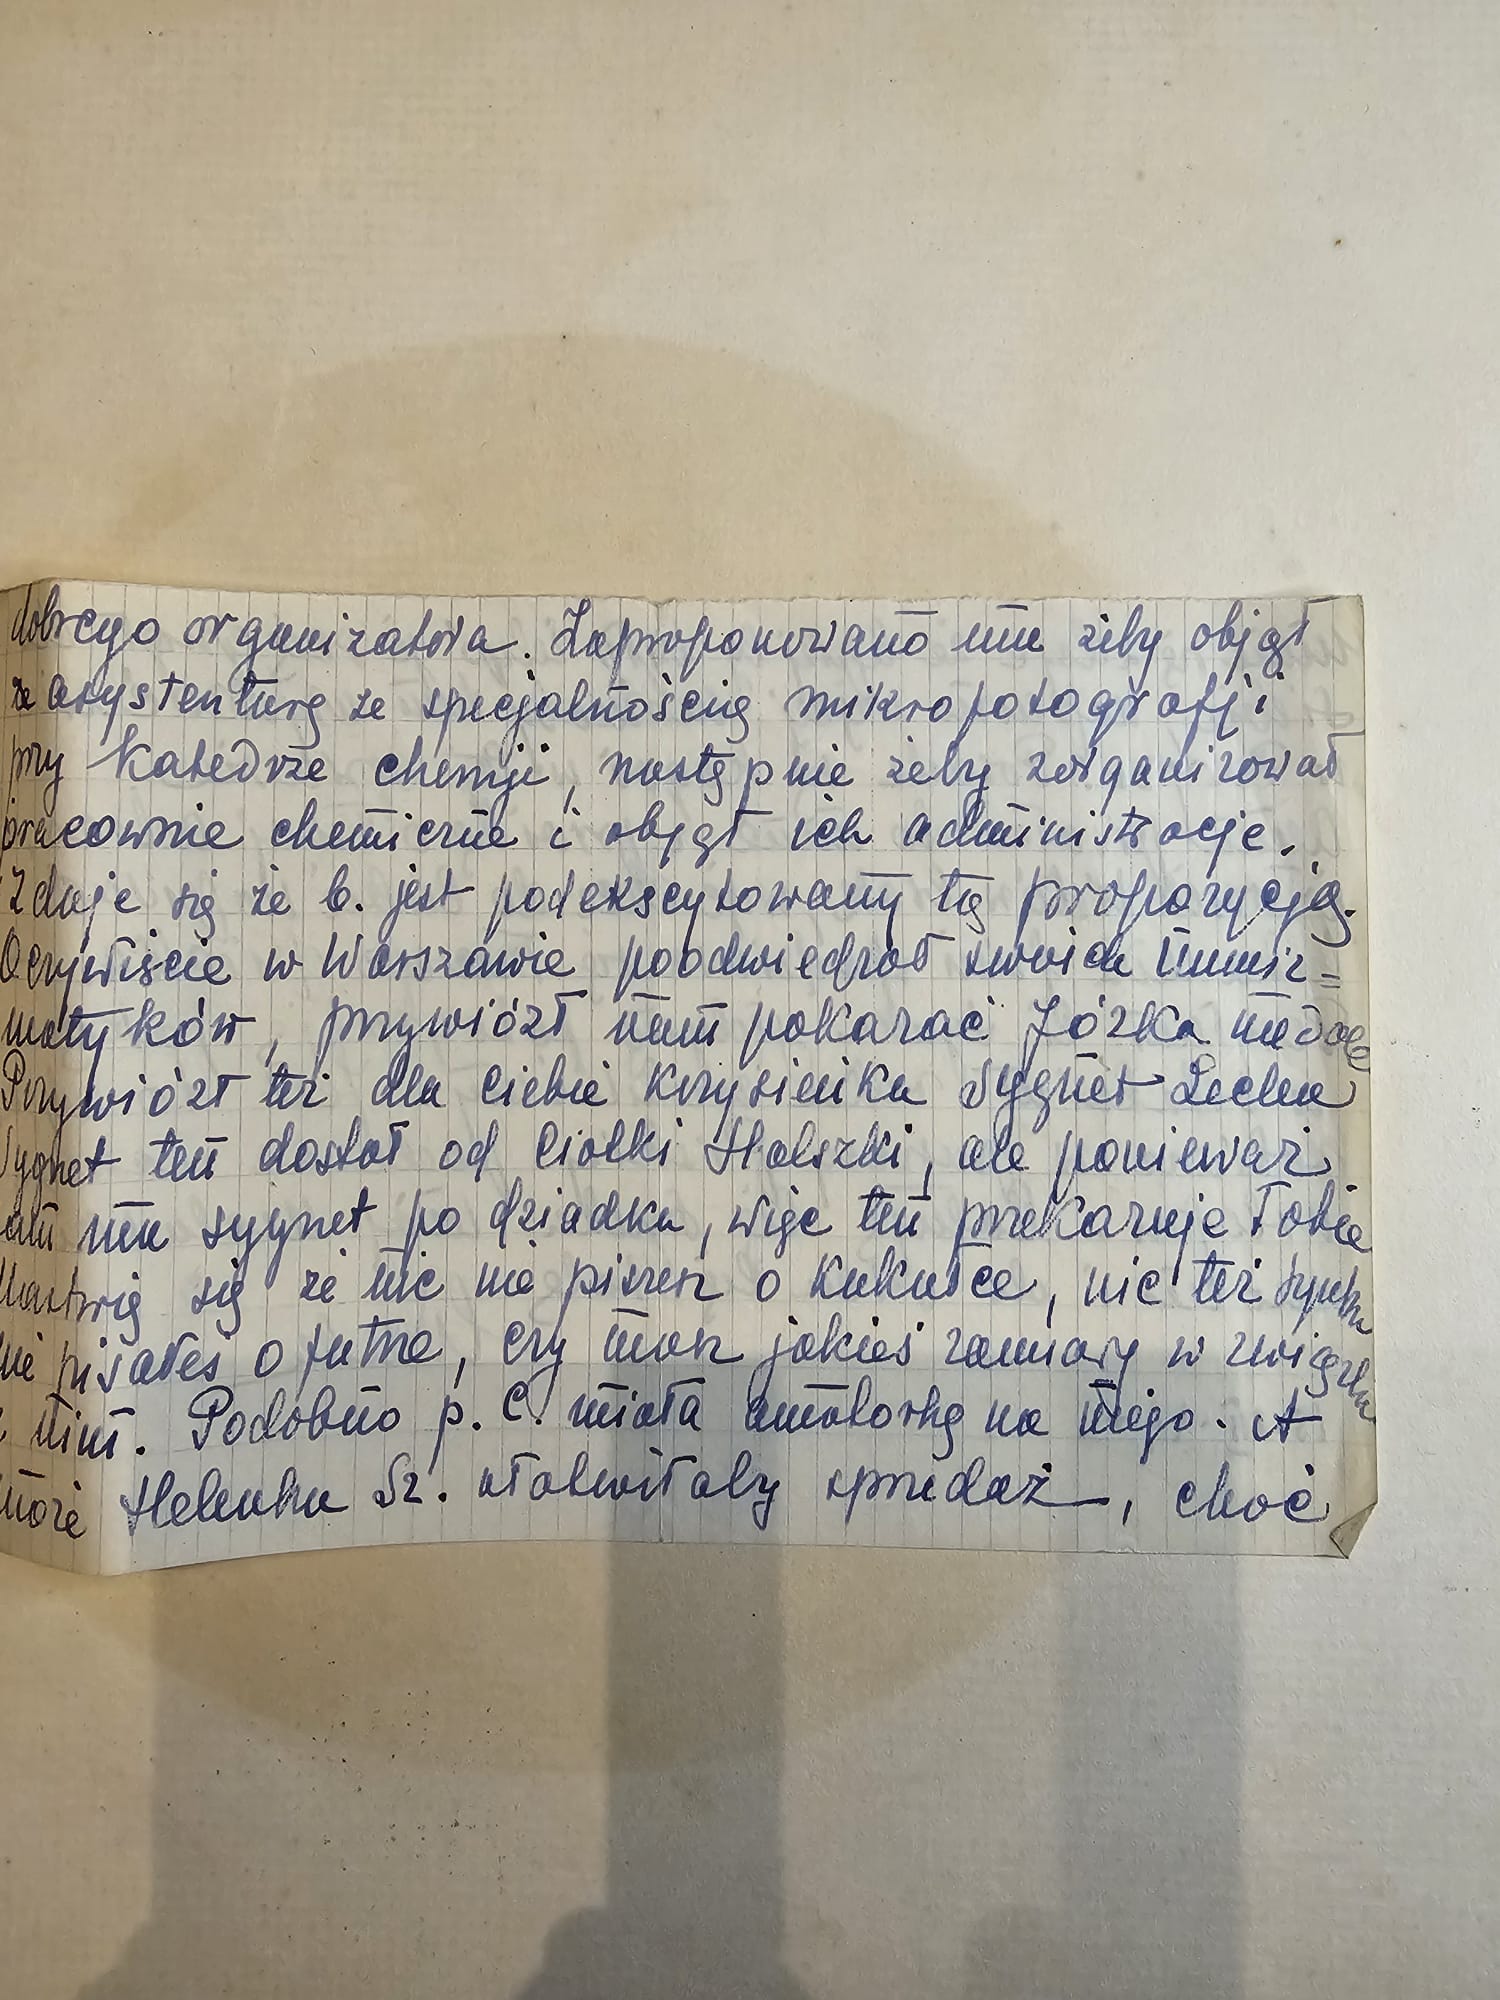 dobrego organizatora. Zaproponowano mu żeby objął
asystenturę ze specjalnością mikrofotografji
przy Katedrze chemji, następnie żeby zorganizował
pracownie chemiczne i objął ich administrację.
Zdaje się że b. jest podekscytowany tą propozycją.
Oczywiście w Warszawie poodwiedzał swoich numiz=
matyków, przywiózł nam pokazać Józka medale
Przywiózł też dla Ciebie Krysieńku sygnet Lecha
Sygnet ten dostał od Ciotki Halszki, ale ponieważ
mu sygnet po dziadku, więc ten przekazuje Tobie
Martwię się że nic nie piszesz o Kukułce, nic też synku
nie pisałeś o futrze, czy masz jakieś zamiary w związku
z nim. Podobno p. C. miała amatorkę na niego. A
może Helenka Sz. ułatwiłaby sprzedaż, choć